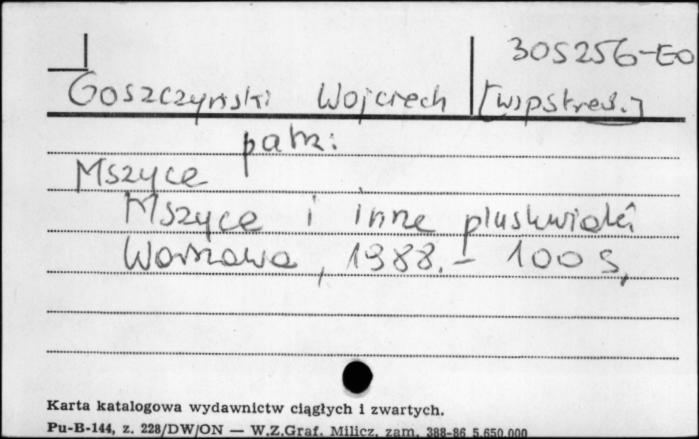 305256-EO
Goszczyński Wojciech [wspstres.]
patrz:
Mszyce
Mszyce i inne pluskwiaki
Warszawa, 1988. - 100 s,
Karta katalogowa wydawnictw ciągłych i zwartych.
Pu-B-144, z. 228/DW/ON — W.Z.Graf. Milicz, zam. 388-86 5.650.000